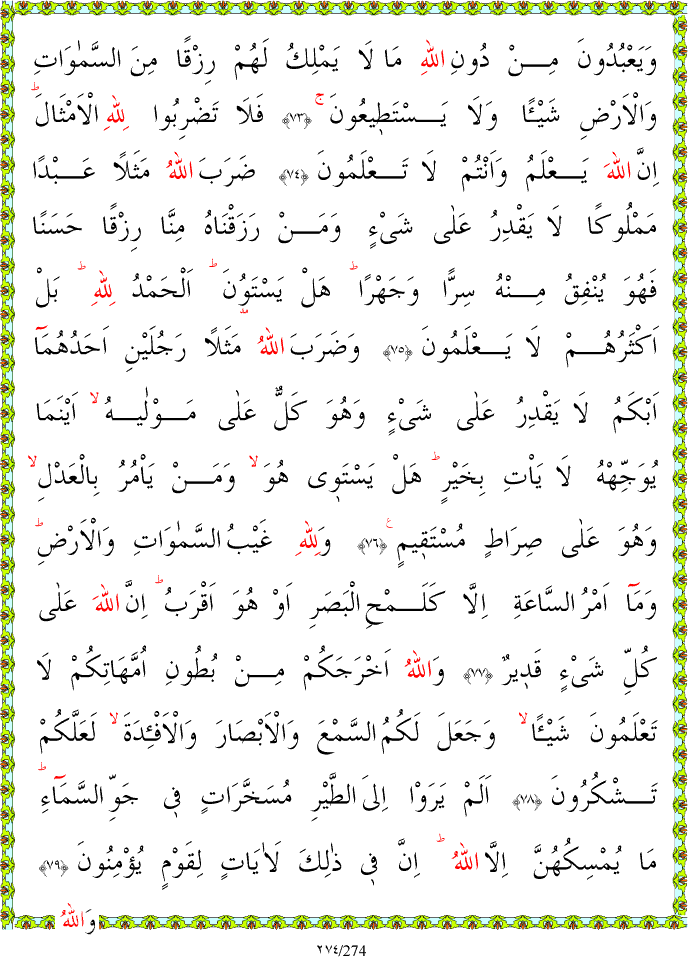 وَيَعْبُدُونَ مِنْ دُونِ اللّٰهِ مَا لَا يَمْلِكُ لَهُمْ رِزْقًا مِنَ السَّمٰوَاتِ
وَالْاَرْضِ شَيْـًٔا وَلَا يَسْتَطٖيعُونَۚ ﴿٧٣﴾ فَلَا تَضْرِبُوا لِلّٰهِ الْاَمْثَالَۜ
اِنَّ اللّٰهَ يَعْلَمُ وَاَنْتُمْ لَا تَعْلَمُونَ ﴿٧٤﴾ ضَرَبَ اللّٰهُ مَثَلًا عَبْدًا
مَمْلُوكًا لَا يَقْدِرُ عَلٰى شَىْءٍ وَمَنْ رَزَقْنَاهُ مِنَّا رِزْقًا حَسَنًا
فَهُوَ يُنْفِقُ مِنْهُ سِرًّا وَجَهْرًاۜ هَلْ يَسْتَوُنَۜ اَلْحَمْدُ لِلّٰهِۜ بَلْ
اَكْثَرُهُمْ لَا يَعْلَمُونَ ﴿٧٥﴾ وَضَرَبَ اللّٰهُ مَثَلًا رَجُلَيْنِ اَحَدُهُمَٓا
اَبْكَمُ لَا يَقْدِرُ عَلٰى شَىْءٍ وَهُوَ كَلٌّ عَلٰى مَوْلٰيهُۙ اَيْنَمَا
يُوَجِّهْهُ لَا يَاْتِ بِخَيْرٍۜ هَلْ يَسْتَوٖى هُوَۙ وَمَنْ يَاْمُرُ بِالْعَدْلِۙ
وَهُوَ عَلٰى صِرَاطٍ مُسْتَقٖيمٍ ۟ ﴿٧٦﴾ وَلِلّٰهِ غَيْبُ السَّمٰوَاتِ وَالْاَرْضِۜ
وَمَٓا اَمْرُ السَّاعَةِ اِلَّا كَلَمْحِ الْبَصَرِ اَوْ هُوَ اَقْرَبُۜ اِنَّ اللّٰهَ عَلٰى
كُلِّ شَىْءٍ قَدٖيرٌ ﴿٧٧﴾ وَاللّٰهُ اَخْرَجَكُمْ مِنْ بُطُونِ اُمَّهَاتِكُمْ لَا
تَعْلَمُونَ شَيْـًٔاۙ وَجَعَلَ لَكُمُ السَّمْعَ وَالْاَبْصَارَ وَالْاَفْـِٔدَةَۙ لَعَلَّكُمْ
تَشْكُرُونَ ﴿٧٨﴾ اَلَمْ يَرَوْا اِلَى الطَّيْرِ مُسَخَّرَاتٍ فٖى جَوِّ السَّمَٓاءِۜ
مَا يُمْسِكُهُنَّ اِلَّا اللّٰهُۜ اِنَّ فٖى ذٰلِكَ لَاٰيَاتٍ لِقَوْمٍ يُؤْمِنُونَ ﴿٧٩﴾
وَاللّٰهُ
٢٧٤/274